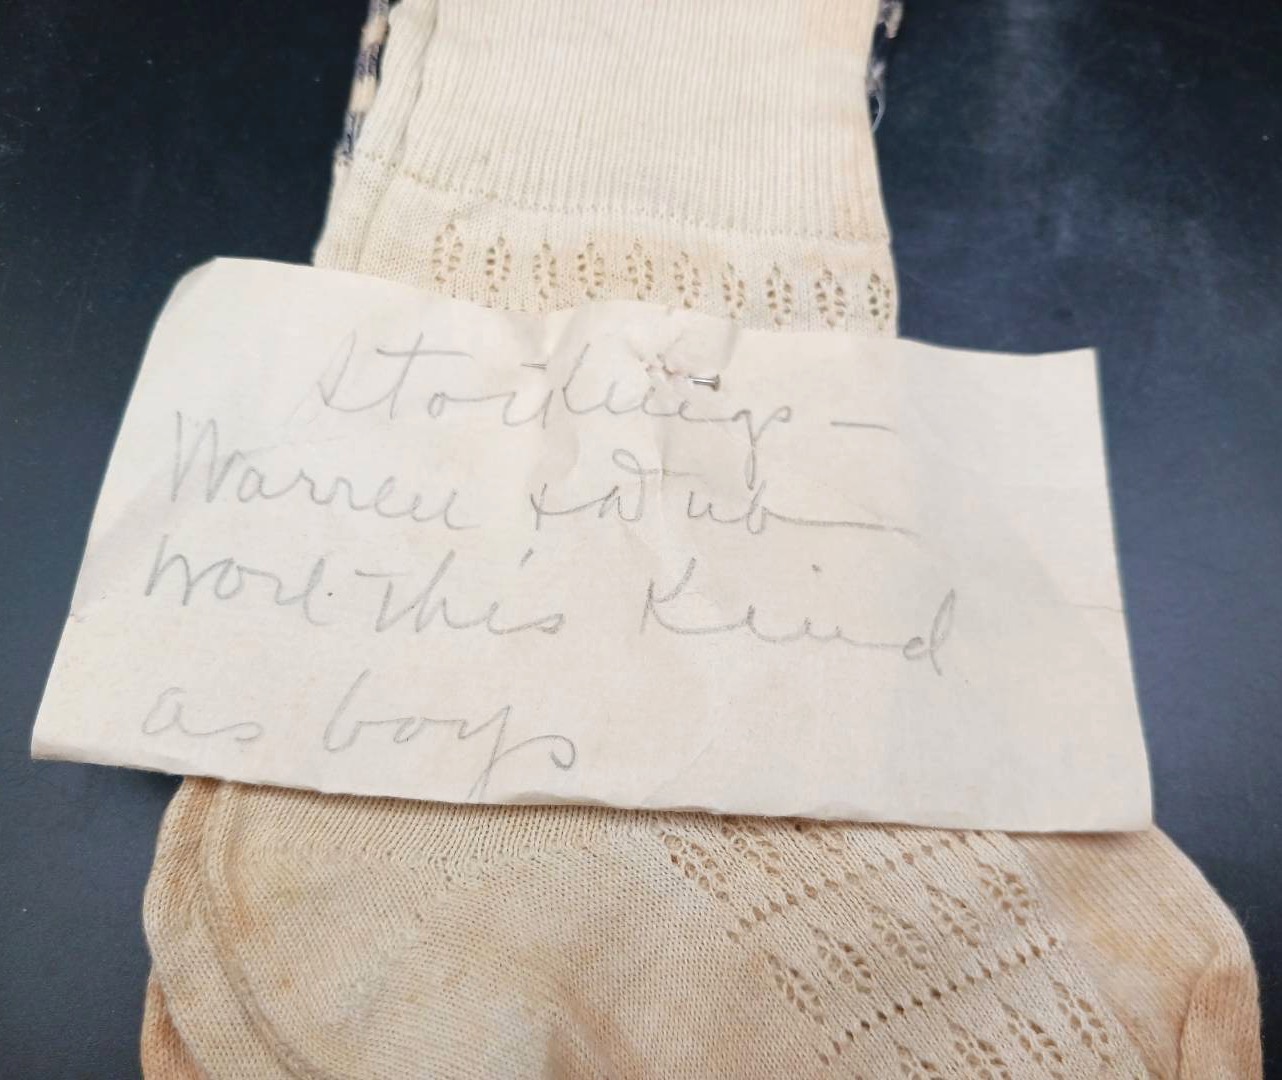 Stockings —
Warren + Dub
wore This Kind
as boys